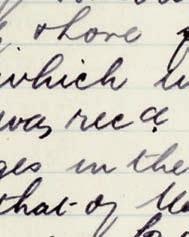 & shore
which
was recd.
ges in the
that of